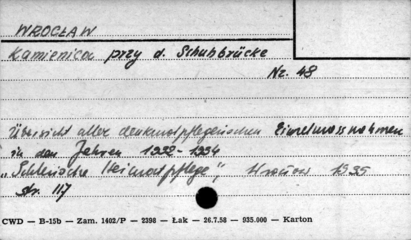 WROCŁAW
Kamienica przy d. Schuhbrücke
Nr. 48
Übersicht aller denkmalpflegerischen Einzelmassnahmen
in den Jahren 1932-1934
"Schlesische Heimatpflege", 1935
str. 117
CWD — B-15b — Zam. 1402/P — 2398 — Łak — 26.7.58 — 935.000 — Karton